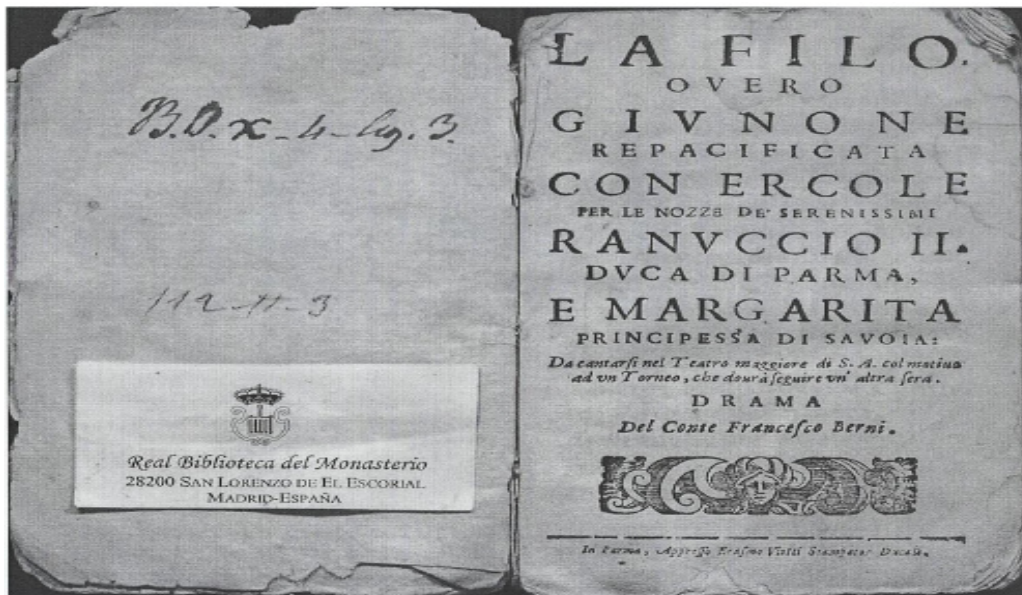 B.O.x-4-lig.3.
112-II-3
Real Biblioteca del Monasterio
28200 SAN LORENZO DE EL ESCORIAL
MADRID-ESPAÑA
LA FILO.
OVERO
GIVNONE
REPACIFICATA
CON ERCOLE
PER LE NOZZE DE' SERENISSIMI
RANVCCIO II.
DVCA DI PARMA,
E MARGARITA
PRINCIPESSA DI SAVOIA:
Da cantarſi nel Teatro maggiore di S. A. col motiuo
ad vn Torneo, che dourà ſeguire vn' altra ſera.
DRAMA
Del Conte Franceſco Berni.
In Parma, Appreſſo Eraſmo Viotti Stampator Ducale.